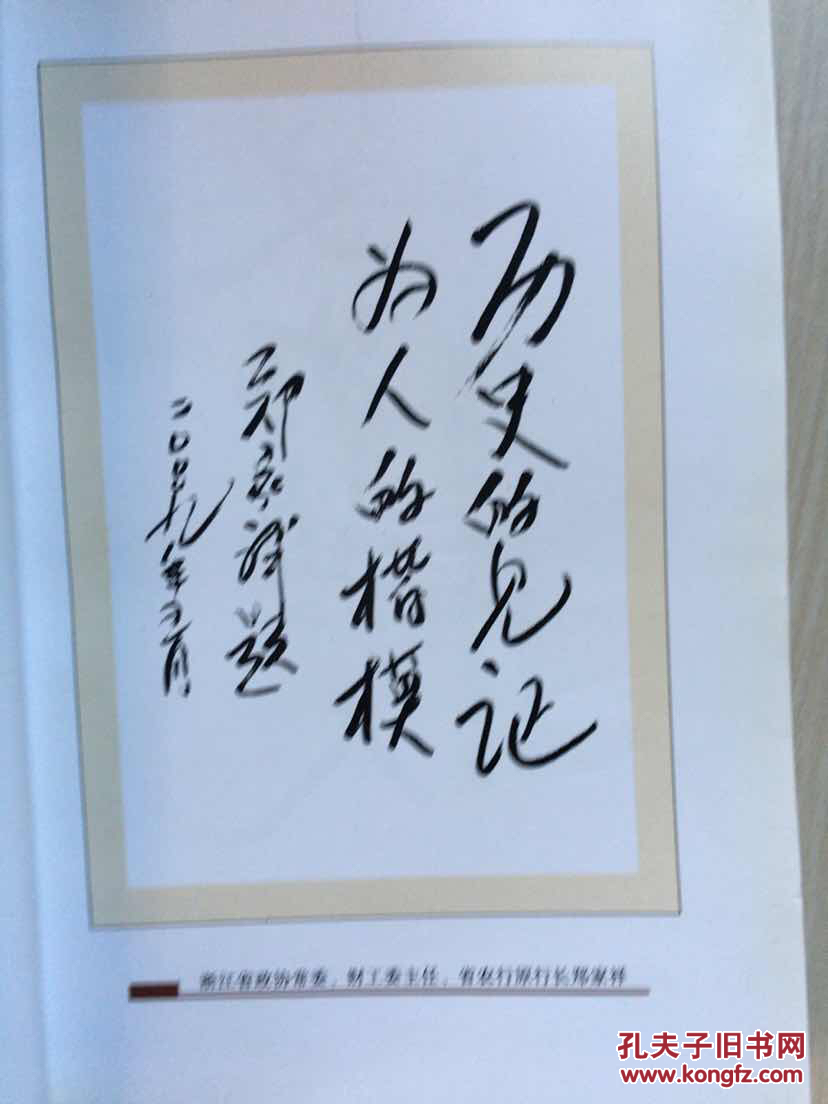 历史的见证
为人的楷模
郑家祥题
二〇〇九年六月
浙江省政协常委、财工委主任、省农行原行长郑家祥
孔夫子旧书网
www.kongfz.com